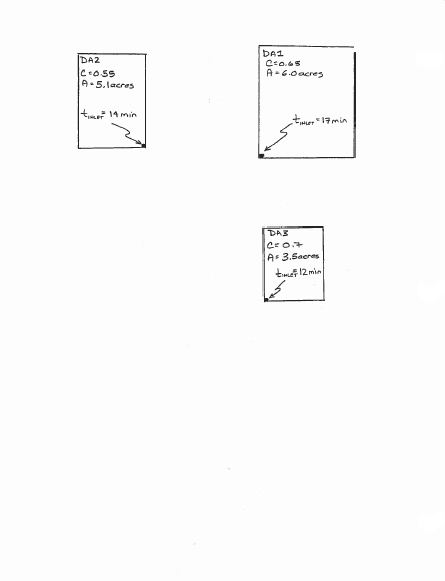 DA2
C=0.55
A=5.1acres
tINLET=14 min
DA1
C=0.65
A=6.0acres
tINLET=17min
DA3
C=0.7
A=3.5acres
tINLET=12min